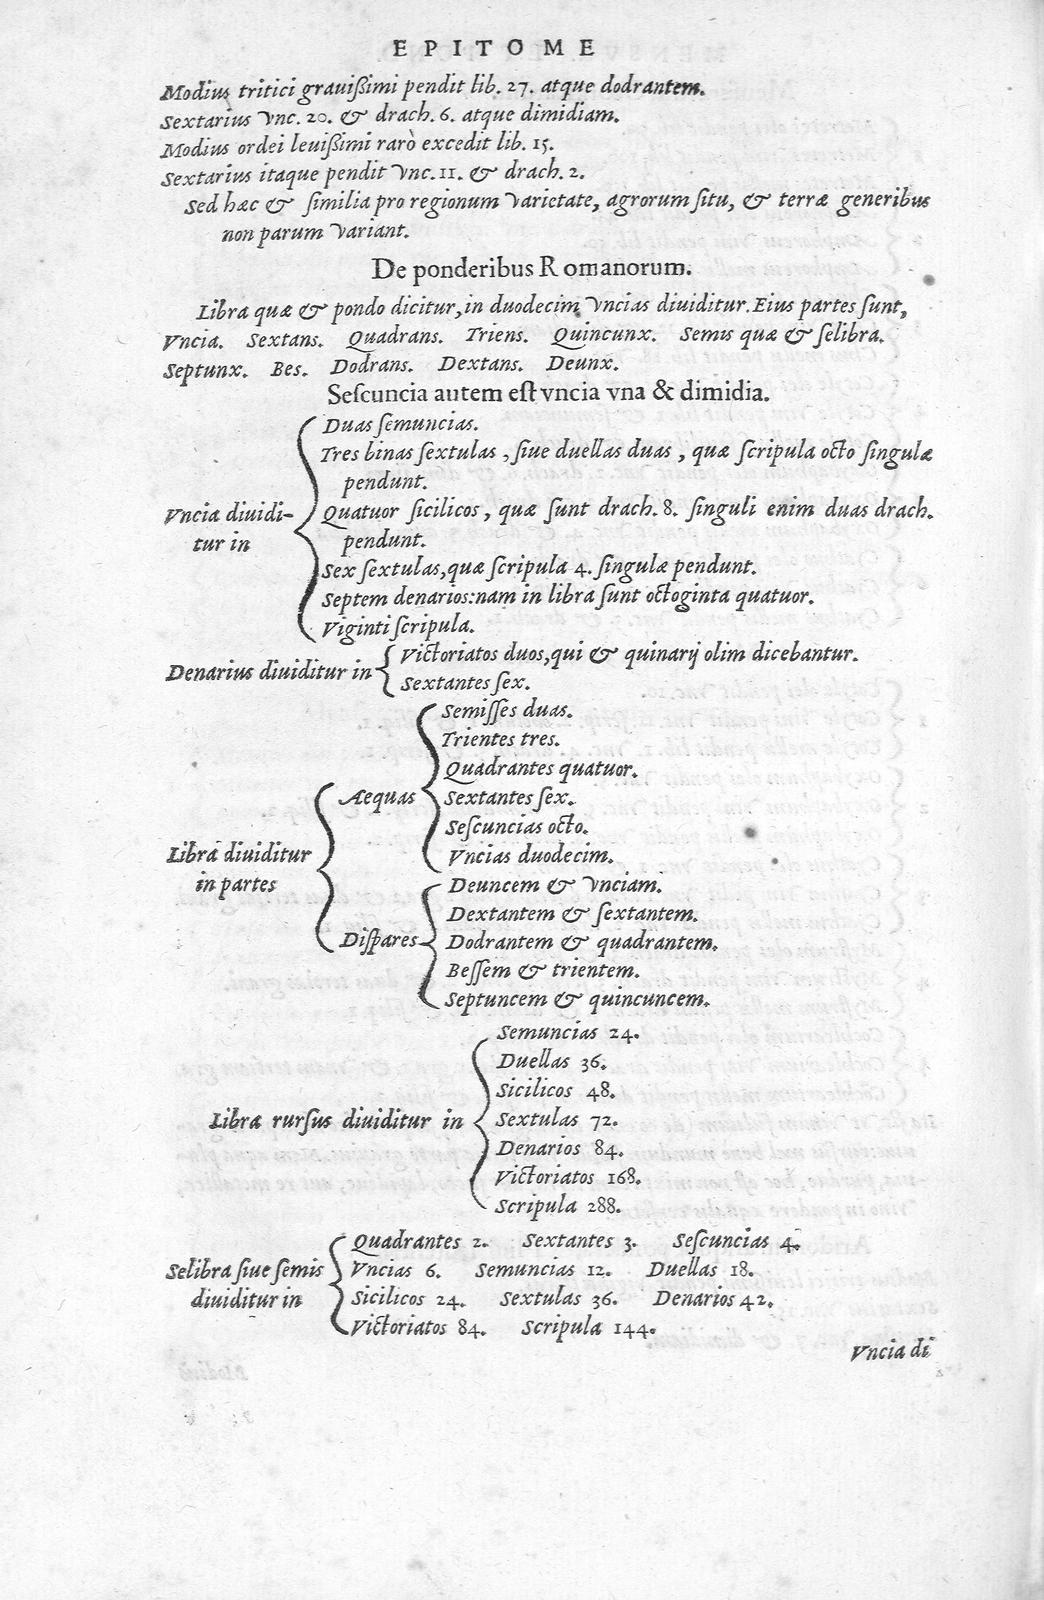 EPITOME
Modius tritici grauißimi pendit lib. 27. atque dodrantem.
Sextarius vnc. 20. & drach. 6. atque dimidiam.
Modius ordei leuißimi rarò excedit lib. 15.
Sextarius itaque pendit vnc. 11. & drach. 2.
Sed hæc & ſimilia pro regionum varietate, agrorum ſitu, & terræ generibus
non parum variant.
De ponderibus Romanorum.
Libra quæ & pondo dicitur, in duodecim vncias diuiditur. Eius partes ſunt,
Vncia. Sextans. Quadrans. Triens. Quincunx. Semis quæ & ſelibra.
Septunx. Bes. Dodrans. Dextans. Deunx.
Seſcuncia autem eſt vncia vna & dimidia.
Duas ſemuncias.
Tres binas ſextulas, ſiue duellas duas, quæ ſcripula octo ſingulæ
pendunt.
Vncia diuidi-
tur in
Quatuor ſicilicos, quæ ſunt drach. 8. ſinguli enim duas drach.
pendunt.
Sex ſextulas, quæ ſcripula 4. ſingulæ pendunt.
Septem denarios: nam in libra ſunt octoginta quatuor.
Viginti ſcripula.
Denarius diuiditur in
Victoriatos duos, qui & quinarij olim dicebantur.
Sextantes ſex.
Libra diuiditur
in partes
Aequas
Semiſſes duas.
Trientes tres.
Quadrantes quatuor.
Sextantes ſex.
Seſcuncias octo.
Vncias duodecim.
Diſpares
Deuncem & vnciam.
Dextantem & ſextantem.
Dodrantem & quadrantem.
Beſſem & trientem.
Septuncem & quincuncem.
Libra rurſus diuiditur in
Semuncias 24.
Duellas 36.
Sicilicos 48.
Sextulas 72.
Denarios 84.
Victoriatos 168.
Scripula 288.
Selibra ſiue ſemis
diuiditur in
Quadrantes 2. Sextantes 3. Seſcuncias 4.
Vncias 6. Semuncias 12. Duellas 18.
Sicilicos 24. Sextulas 36. Denarios 42.
Victoriatos 84. Scripula 144.
Vncia di